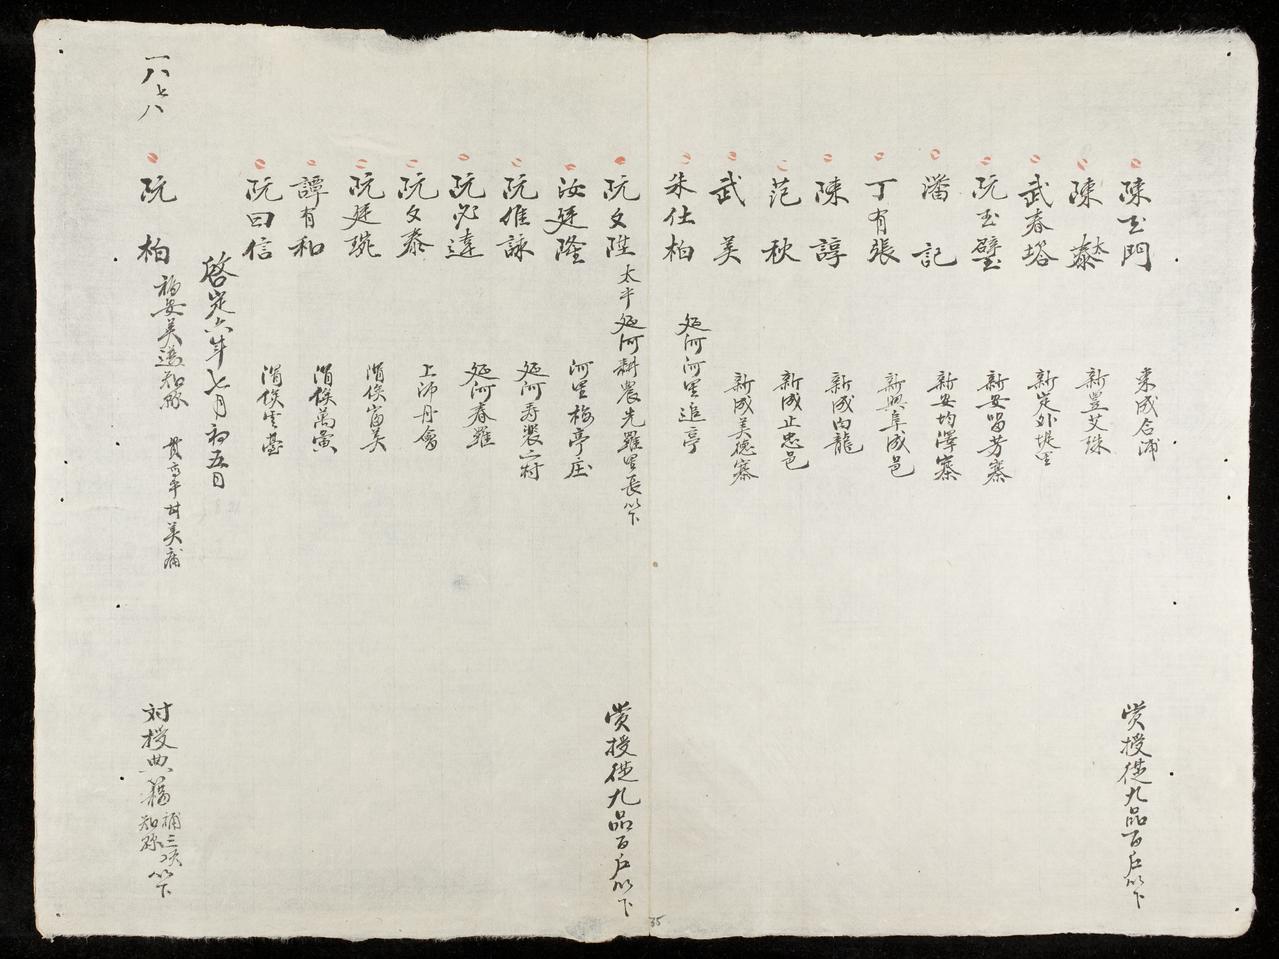 陳玉門 東成合浦 賞授從九品百戶以下
陳泰 新豐艾珠
武春塔 新定外堤里
阮玉璧 新安留芳寨
潘記 新安均澤寨
丁有張 新興阜成邑
陳諄 新成內龍
范秋 新成止忠邑
武美 新成美德寨
朱仕柏 延河河里追亭
阮文陞 太平延河耕農先羅里長以下 賞授從九品百戶以下
汝廷隆 河里梅亭庄
阮維詠 延河壽裴二村
阮必達 延河春羅
阮文泰 上師丹會
阮廷琬 渭候富美
譚有和 渭候萬
阮曰信 渭候
啓定六年七月初五日
一八七八
阮柏 福安美 知縣 貫 平 美 対授典籍補三項知縣以下
35